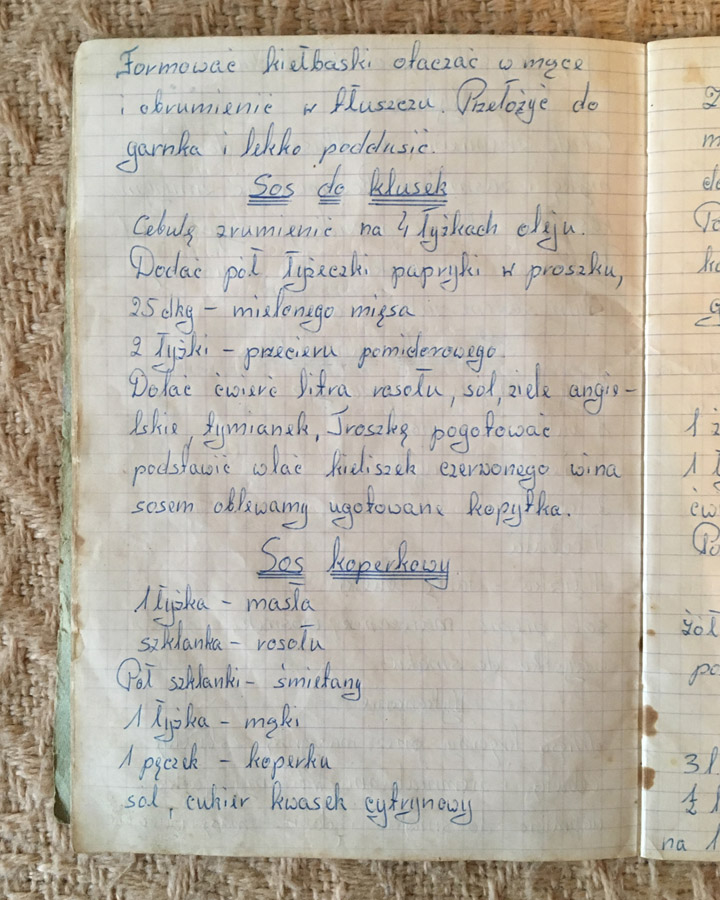 Formować kiełbaski otaczać w mące
i obrumienić w tłuszczu. Przełożyć do
garnka i lekko poddusić.
Sos do klusek
Cebulę zrumienić na 4 łyżkach oleju.
Dodać pół łyżeczki papryki w proszku,
25 dkg – mielonego mięsa
2 łyżki – przecieru pomidorowego
Dolać ćwierć litra rosołu, sól, ziele angie–
lskie, tymianek, Troszkę pogotować
podstawić wlać kieliszek czerwonego wina
sosem oblewamy ugotowane kopytka.
Sos koperkowy
1 łyżka – masła
szklanka – rosołu
Pół szklanki – śmietany
1 łyżka – mąki
1 pęczek – koperku
sól, cukier kwasek cytrynowy
Z
m
do
Po
ko
1
1
ćw
Po
żół
po
3
na 1